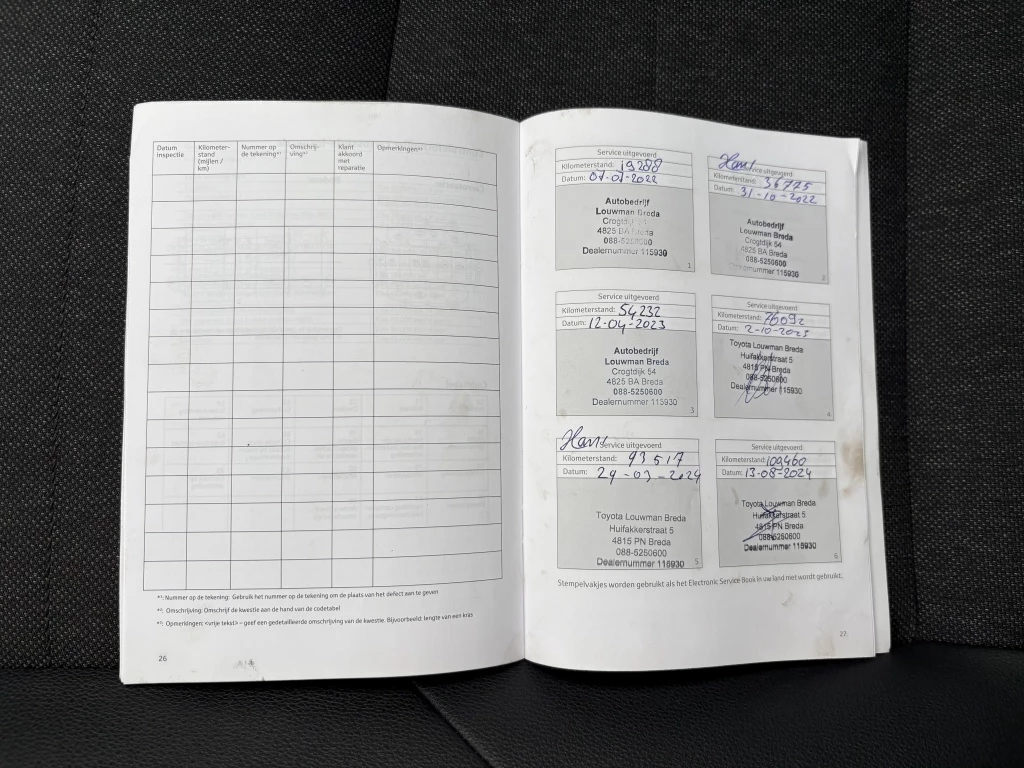 Datum inspectie
Kilometerstand (mijlen / km)
Nummer op de tekening*¹
Omschrijving*²
Klant akkoord met reparatie
Opmerkingen*³
*¹: Nummer op de tekening: Gebruik het nummer op de tekening om de plaats van het defect aan te geven
*²: Omschrijving: Omschrijf de kwestie aan de hand van de codetabel
*³: Opmerkingen: <vrije tekst> – geef een gedetailleerde omschrijving van de kwestie. Bijvoorbeeld: lengte van een kras
26
Service uitgevoerd
Kilometerstand: 19288
Datum: 07-01-2022
Autobedrijf
Louwman Breda
Crogtdijk 54
4825 BA Breda
088-5250600
Dealernummer 115930
1
Hans
Service uitgevoerd
Kilometerstand: 36775
Datum: 31-10-2022
Autobedrijf
Louwman Breda
Crogtdijk 54
4825 BA Breda
088-5250600
Dealernummer 115930
2
Service uitgevoerd
Kilometerstand: 54232
Datum: 12-04-2023
Autobedrijf
Louwman Breda
Crogtdijk 54
4825 BA Breda
088-5250600
Dealernummer 115930
3
Service uitgevoerd
Kilometerstand: 76092
Datum: 2-10-2023
Toyota Louwman Breda
Huifakkerstraat 5
4815 PN Breda
088-5250600
Dealernummer 115930
4
Hans
Service uitgevoerd
Kilometerstand: 93517
Datum: 29-03-2024
Toyota Louwman Breda
Huifakkerstraat 5
4815 PN Breda
088-5250600
Dealernummer 115930
5
Service uitgevoerd
Kilometerstand: 109460
Datum: 13-08-2024
Toyota Louwman Breda
Huifakkerstraat 5
4815 PN Breda
088-5250600
Dealernummer 115930
6
Stempelvakjes worden gebruikt als het Electronic Service Book in uw land niet wordt gebruikt.
27